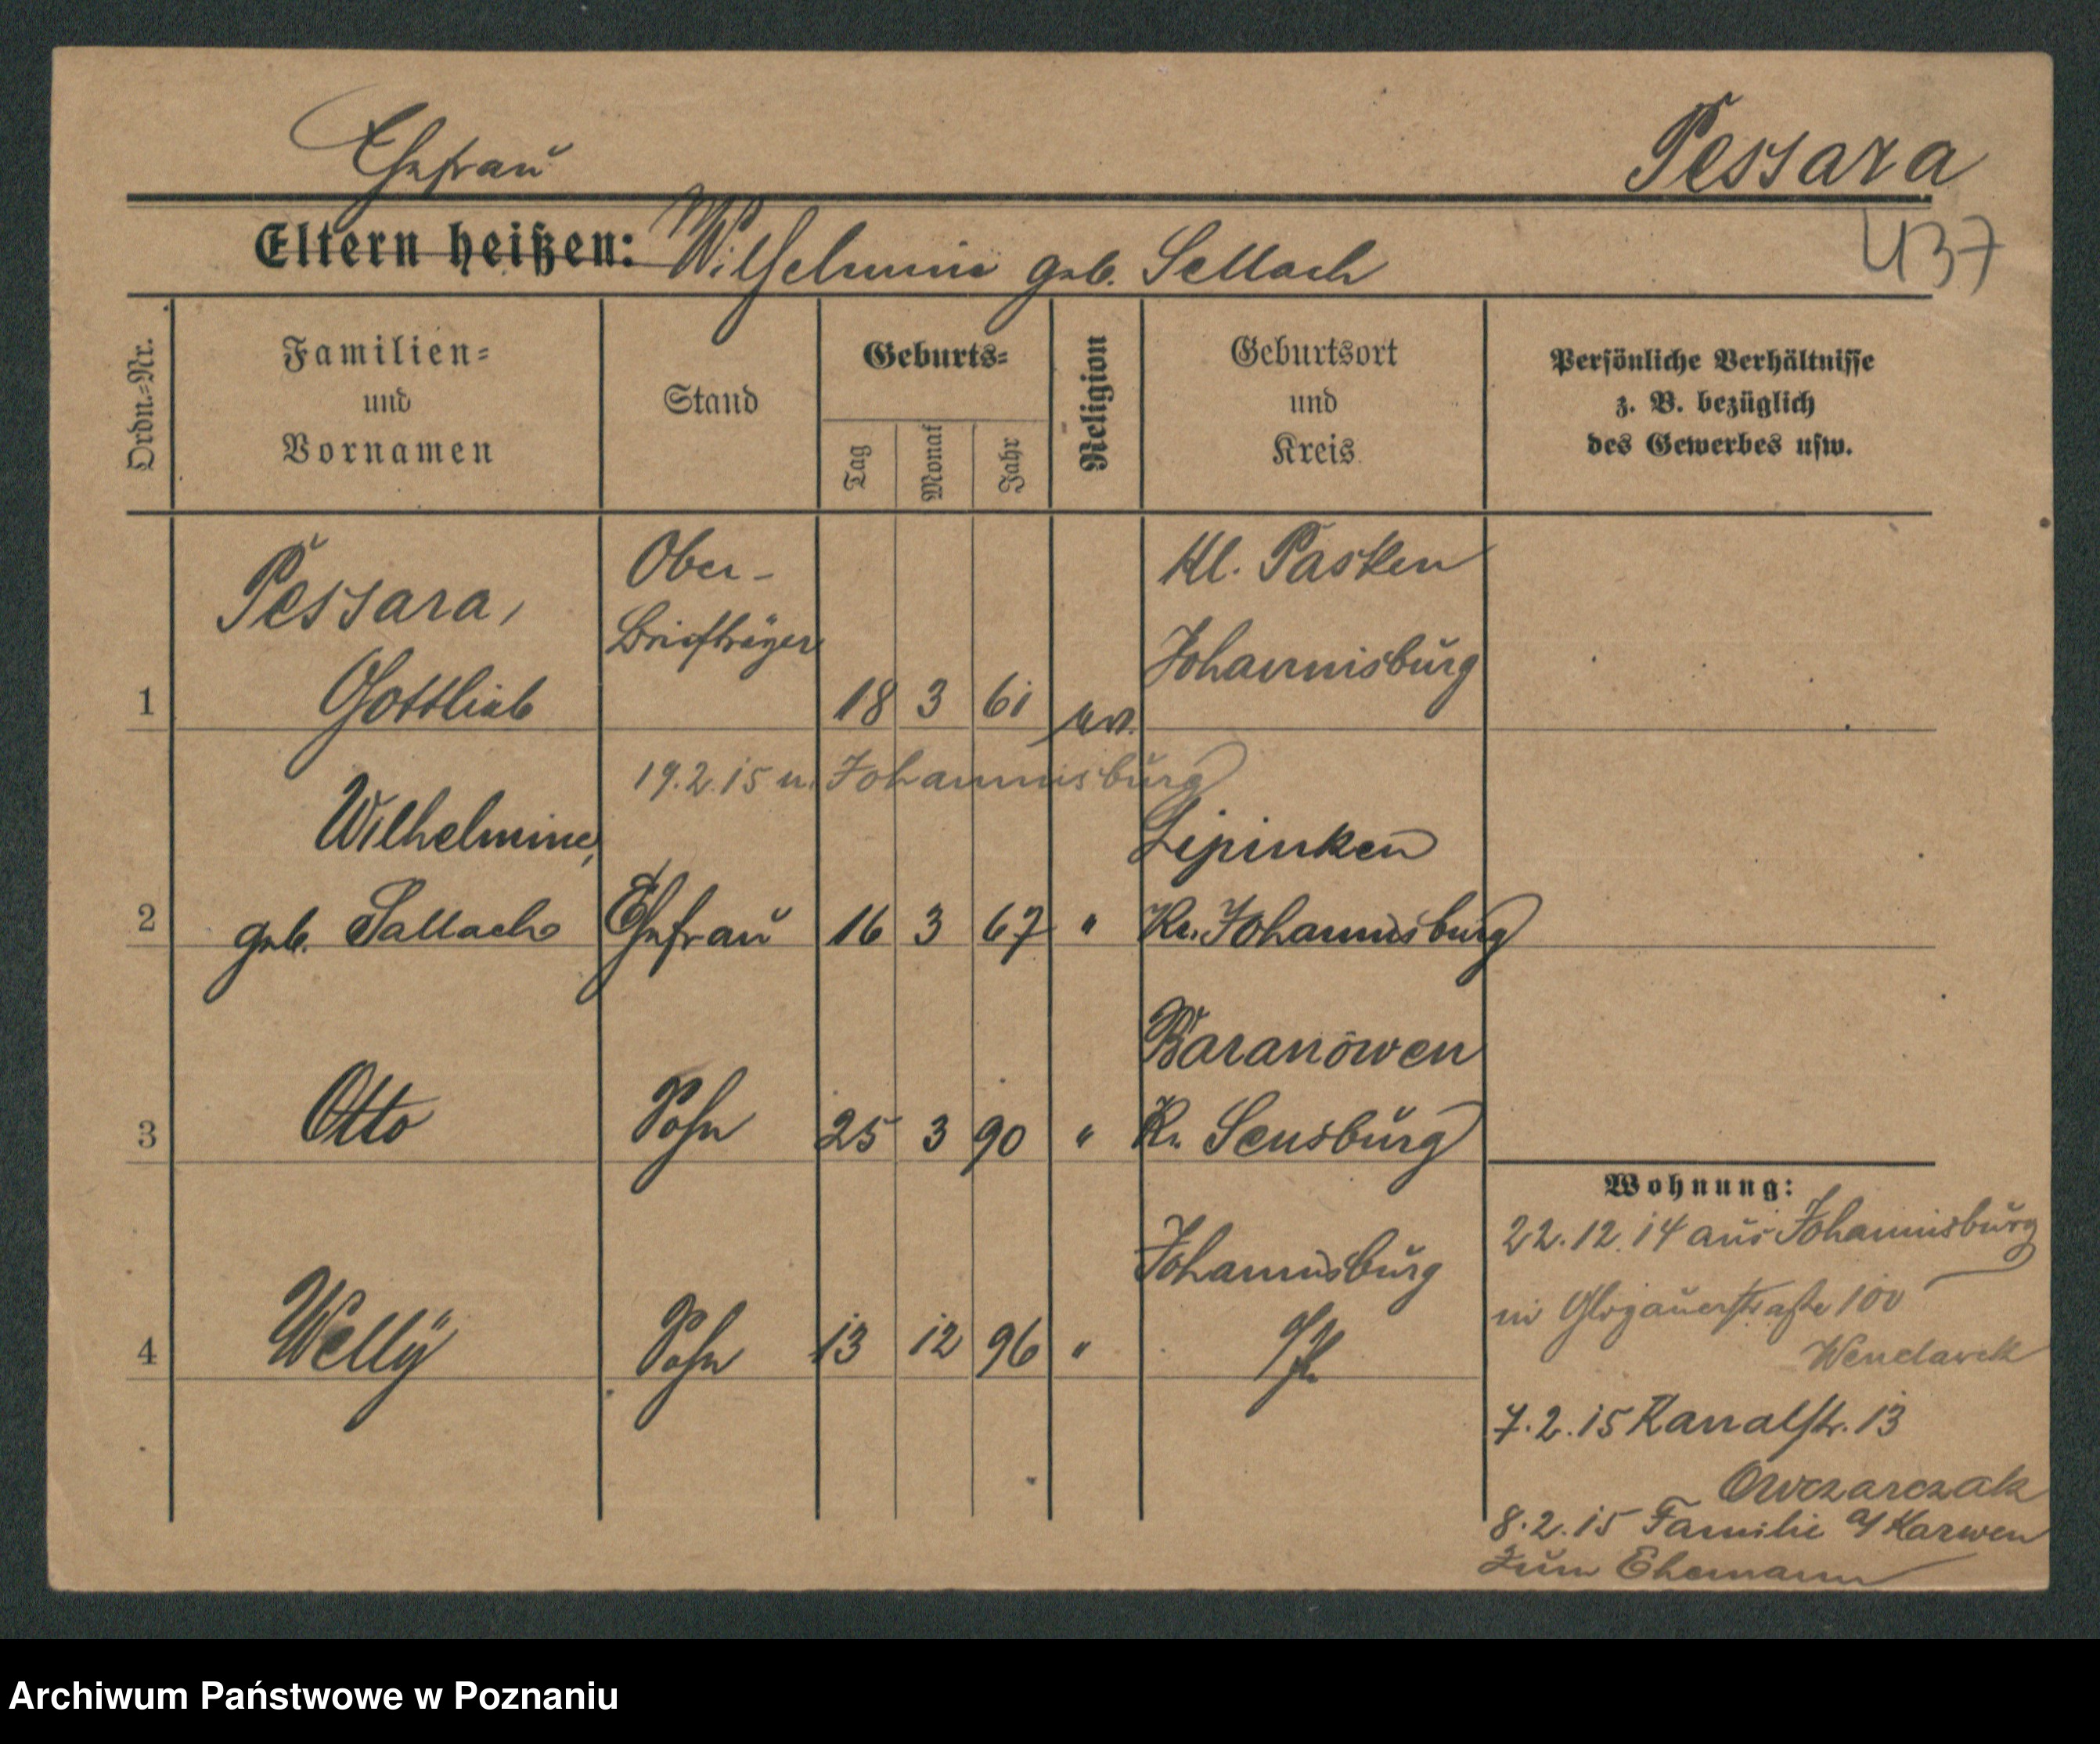 Ehefrau Pessara
Eltern heißen: Wilhelmine geb. Sellach
437
Ordn.=Nr.
Familien=
und
Vornamen
Stand
Geburts=
Tag
Monat
Jahr
Religion
Geburtsort
und
Kreis
Persönliche Verhältnisse
z. B. bezüglich
des Gewerbes usw.
1
Pessara,
Gottlieb
Ober-
Briefträger
18 3 61 ev.
Kl. Pasken
Johannisburg
19.2.15 n. Johannisburg
2
Wilhelmine,
geb. Sallach
Ehefrau 16 3 67 "
Lipinken
Kr. Johannisburg
3
Otto Sohn 25 3 90 "
Baranowen
Kr. Sensburg
4
Welly Sohn 13 12 96 "
Johannisburg
Wohnung:
22.12.14 aus Johannisburg
in Glogauerstraße 100
7.2.15 Kanalstr. 13
Owczarczak
8.2.15 Familie a/ Karwen
zum Ehemann
Archiwum Państwowe w Poznaniu